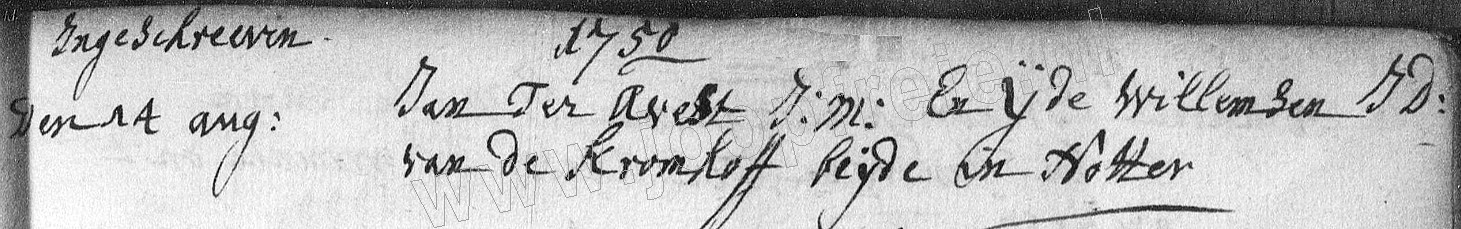 Ingeschreeven. 1750
Den 14 aug: Jan Ter Avest J:m: En Ÿde Willemsen J D:
van de Kromhoff beÿde in Notter